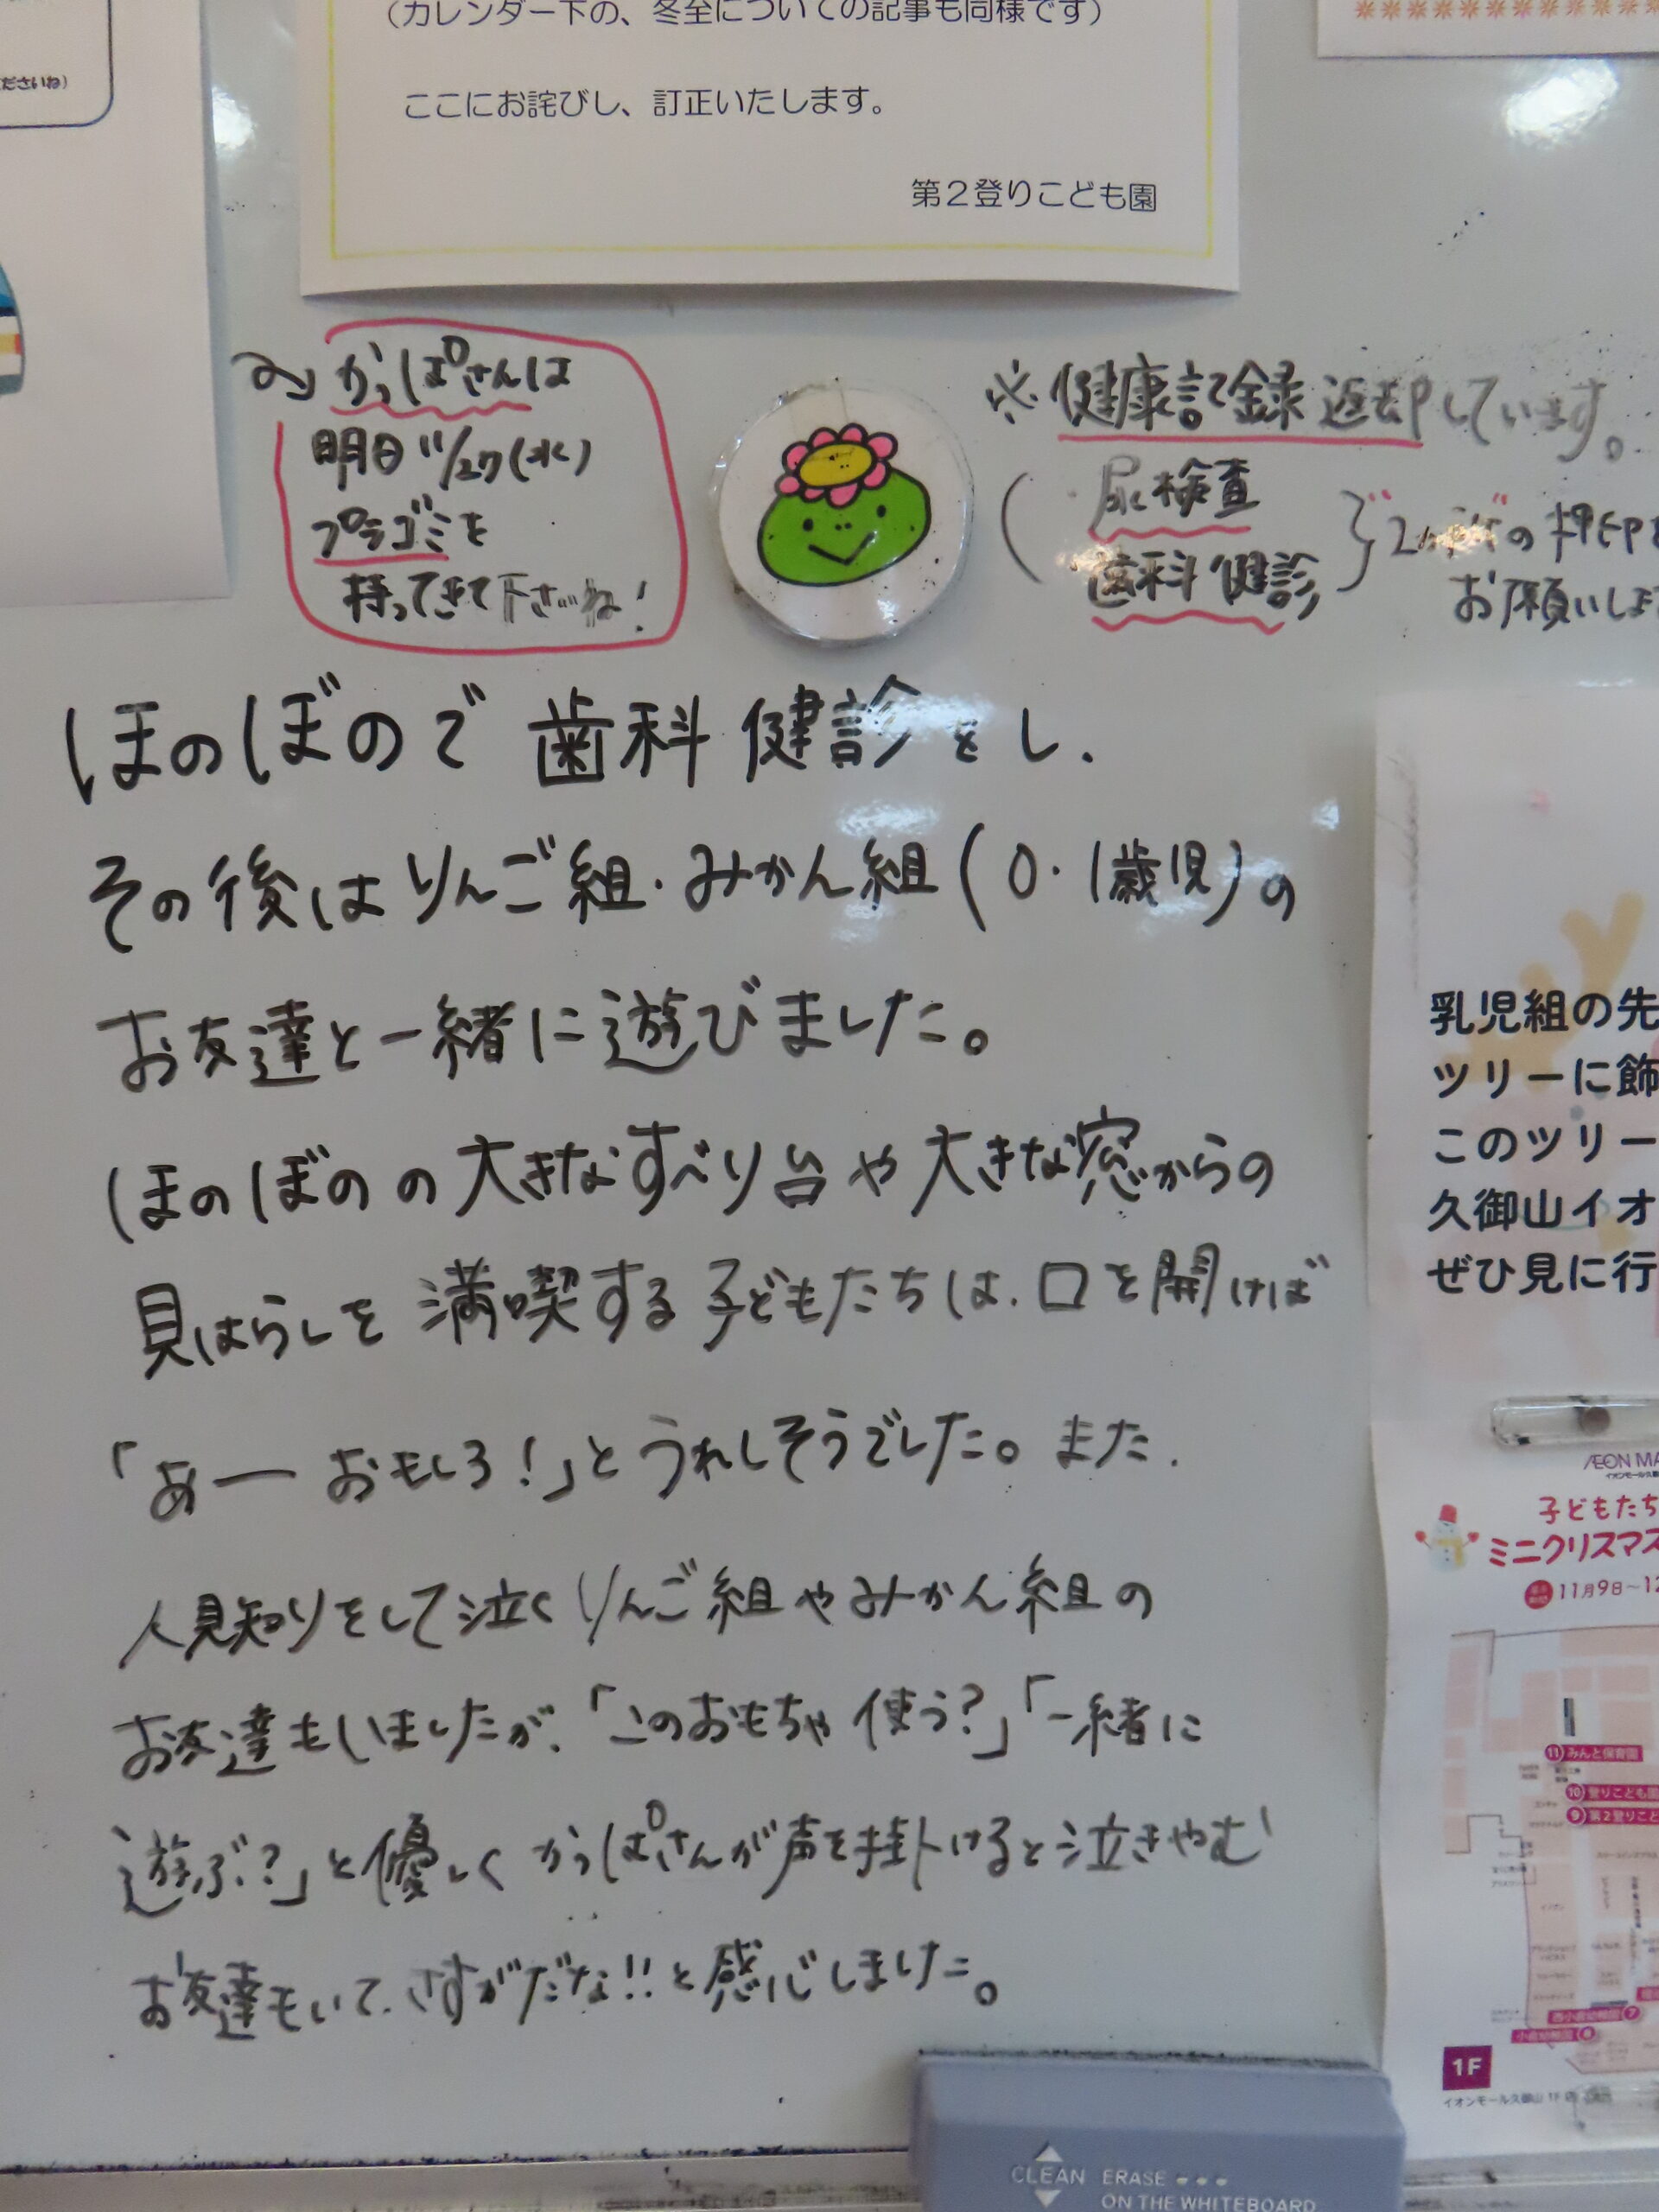 ださいね)
(カレンダー下の、冬至についての記事も同様です)
ここにお詫びし、訂正いたします。
第2登りこども園
かっぱさんは
明日11/27(水)
プラゴミを
持ってきて下さいね!
※健康記録返却しています。
尿検査
歯科健診
の押印を
お願いしま
ほのぼので歯科健診をし、
その後はりんご組・みかん組(0・1歳児)の
お友達と一緒に遊びました。
ほのぼのの大きなすべり台や大きな窓からの
見はらしを満喫する子どもたちは、口を開けば
「あーおもしろ!」とうれしそうでした。また、
人見知りをして泣くりんご組やみかん組の
お友達もいましたが、「このおもちゃ使う?」「一緒に
遊ぶ?」と優しくかっぱさんが声を掛けると泣きやむ
お友達もいて、さすがだな!!と感じました。
乳児組の先
ツリーに飾
このツリー
久御山イオ
ぜひ見に行
ÆON MA
子どもたち
ミニクリスマス
11月9日~12
11 みんと保育園
10 登りこども園
9 第2登りこど
7
6
1F
イオンモール久御山 1F
CLEAN ERASE
ON THE WHITEBOARD